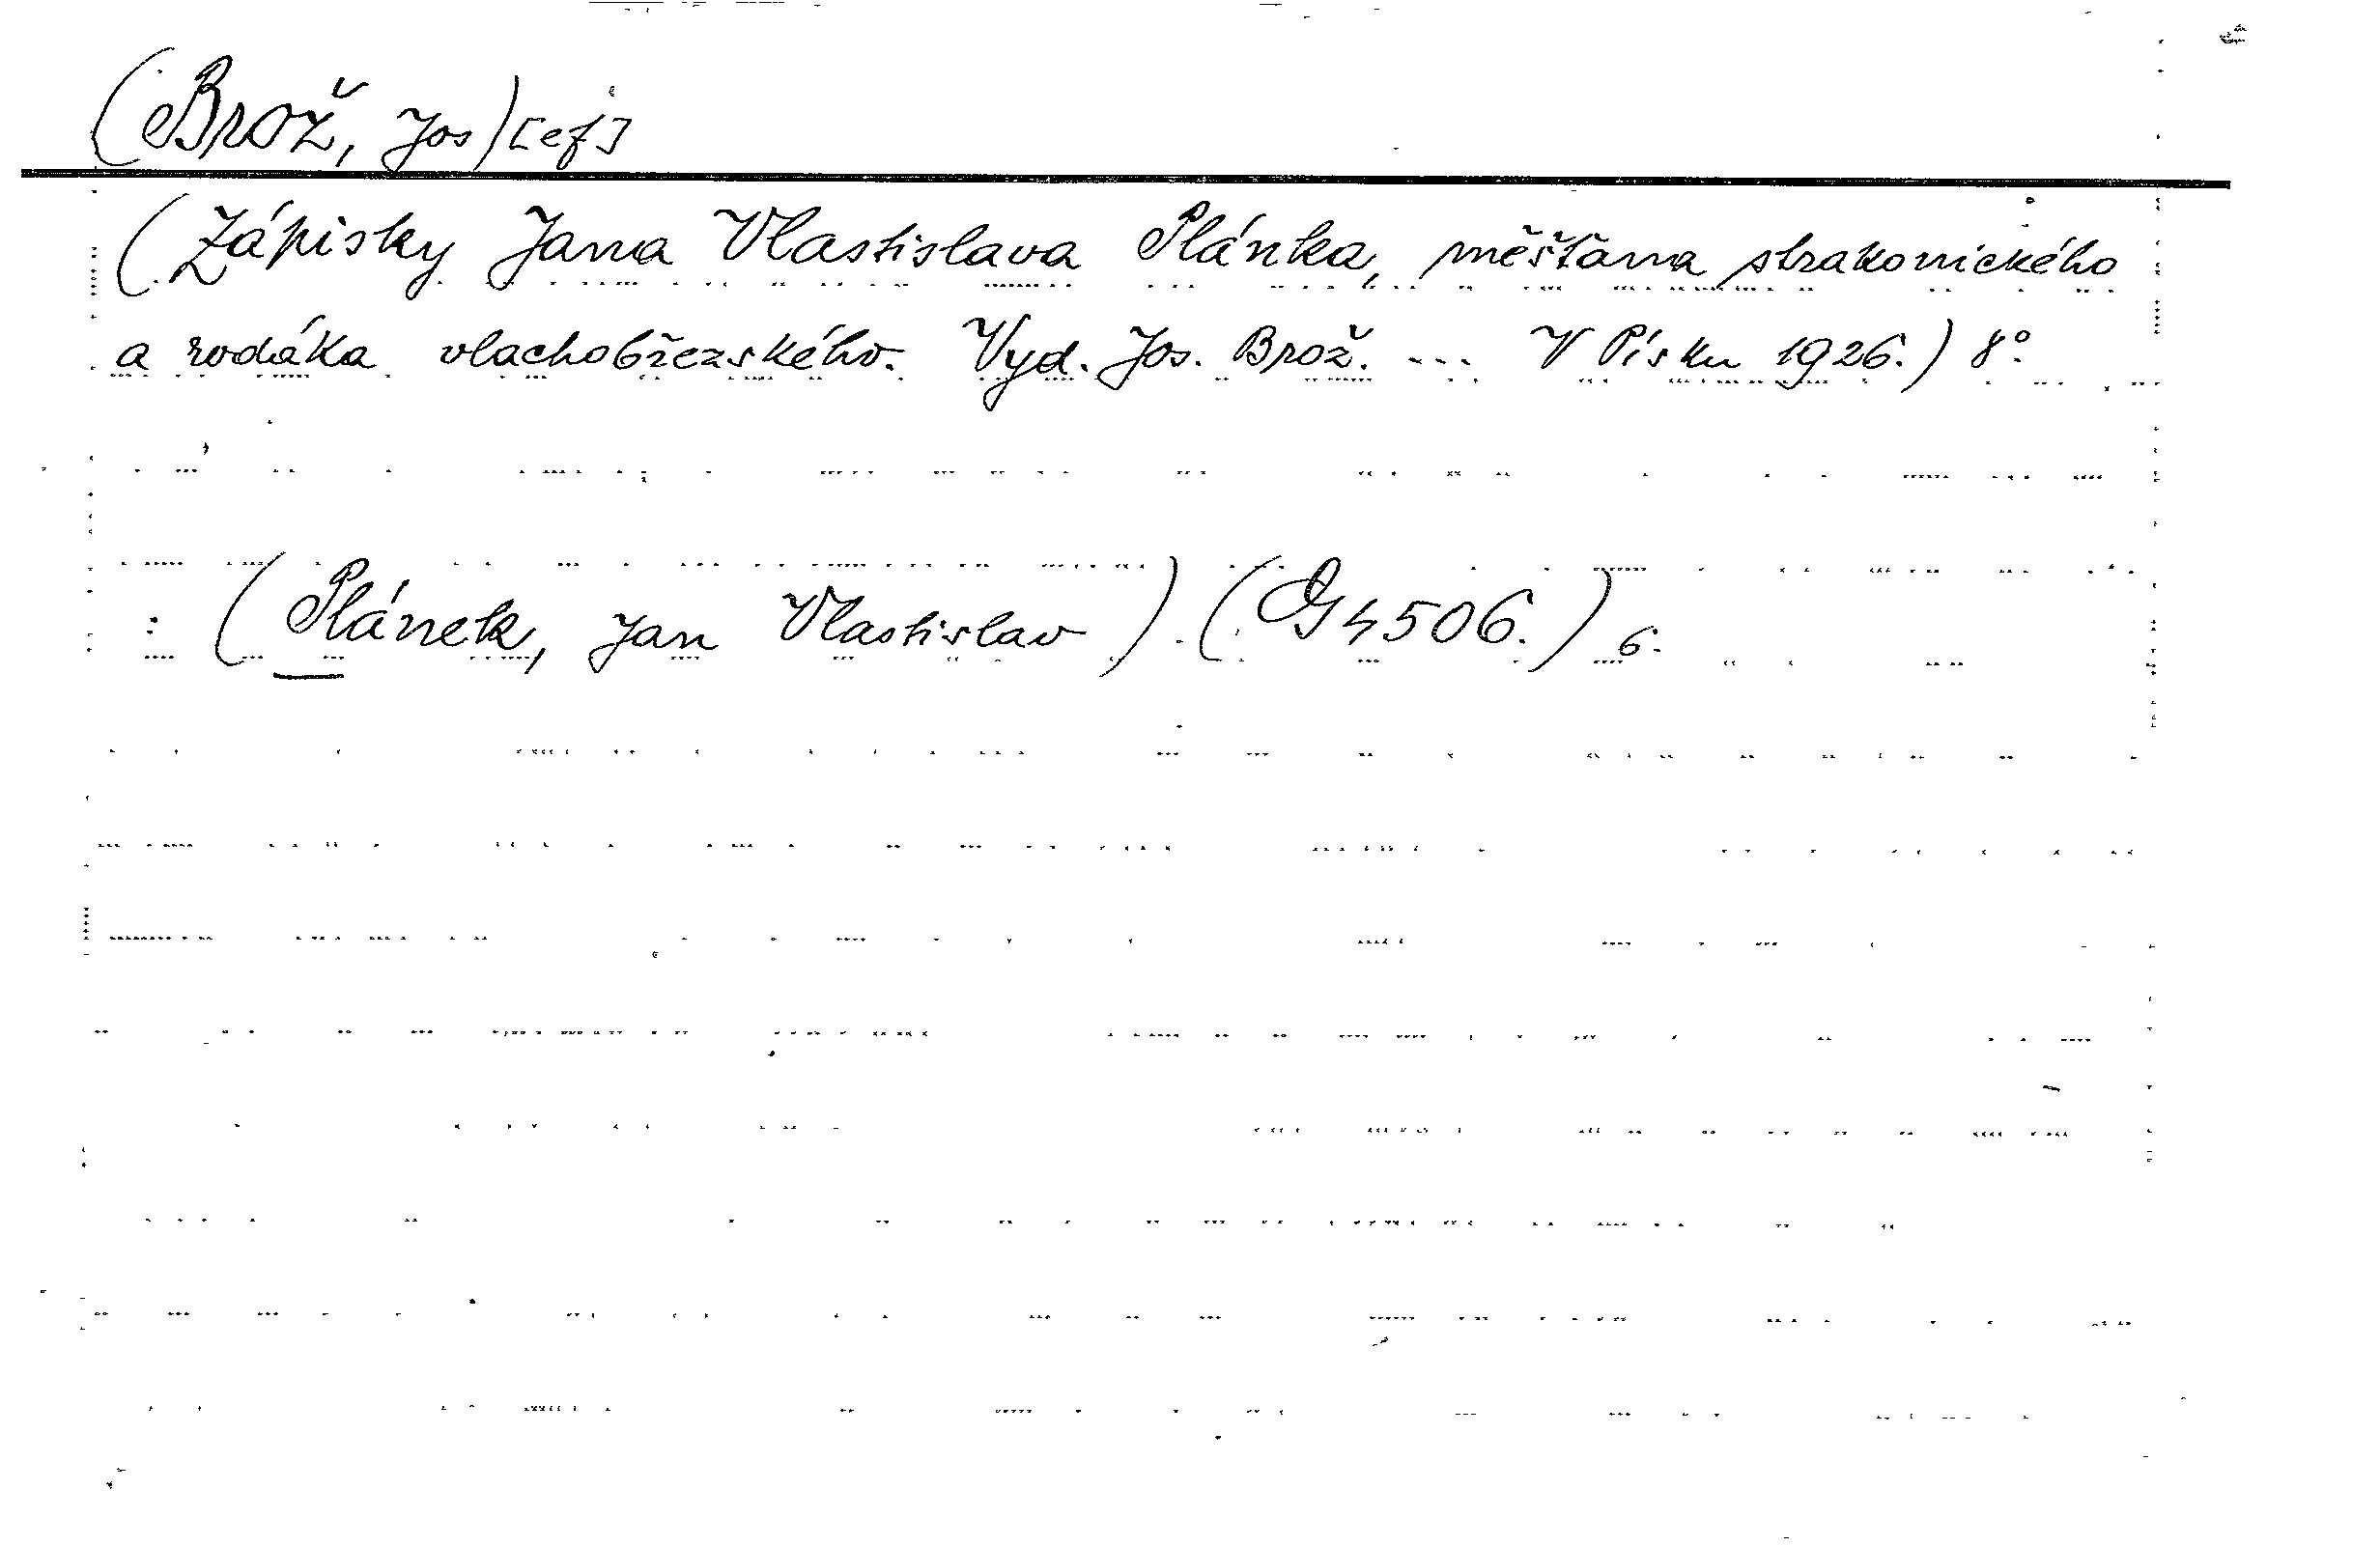 (Brož, Jos)[ef]
(Zápisky Jana Vlastislava Plánka, měšťana strakonického
a rodáka vlachobřezského. Vyd. Jos. Brož. --- V Písku 1926.) 8°.
: (Plánek, Jan Vlastislav). (G 4506.) 6.